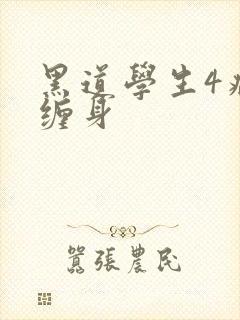 黑道學生4
缠身
囂張農民